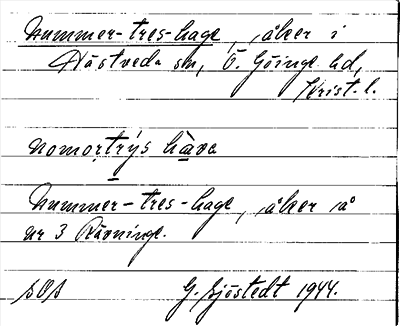 Nummer-tres-hage, åker i
Hästveda sn, Ö. Göinge hd,
Krist. l.
nomortrýs hava
Nummer-tres-hage, åker å
nr 3 Rävninge.
SOS G. Sjöstedt 1944.